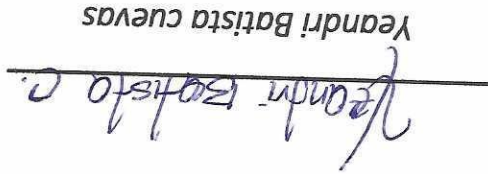 Yeandri Batista C.
Yeandri Batista cuevas